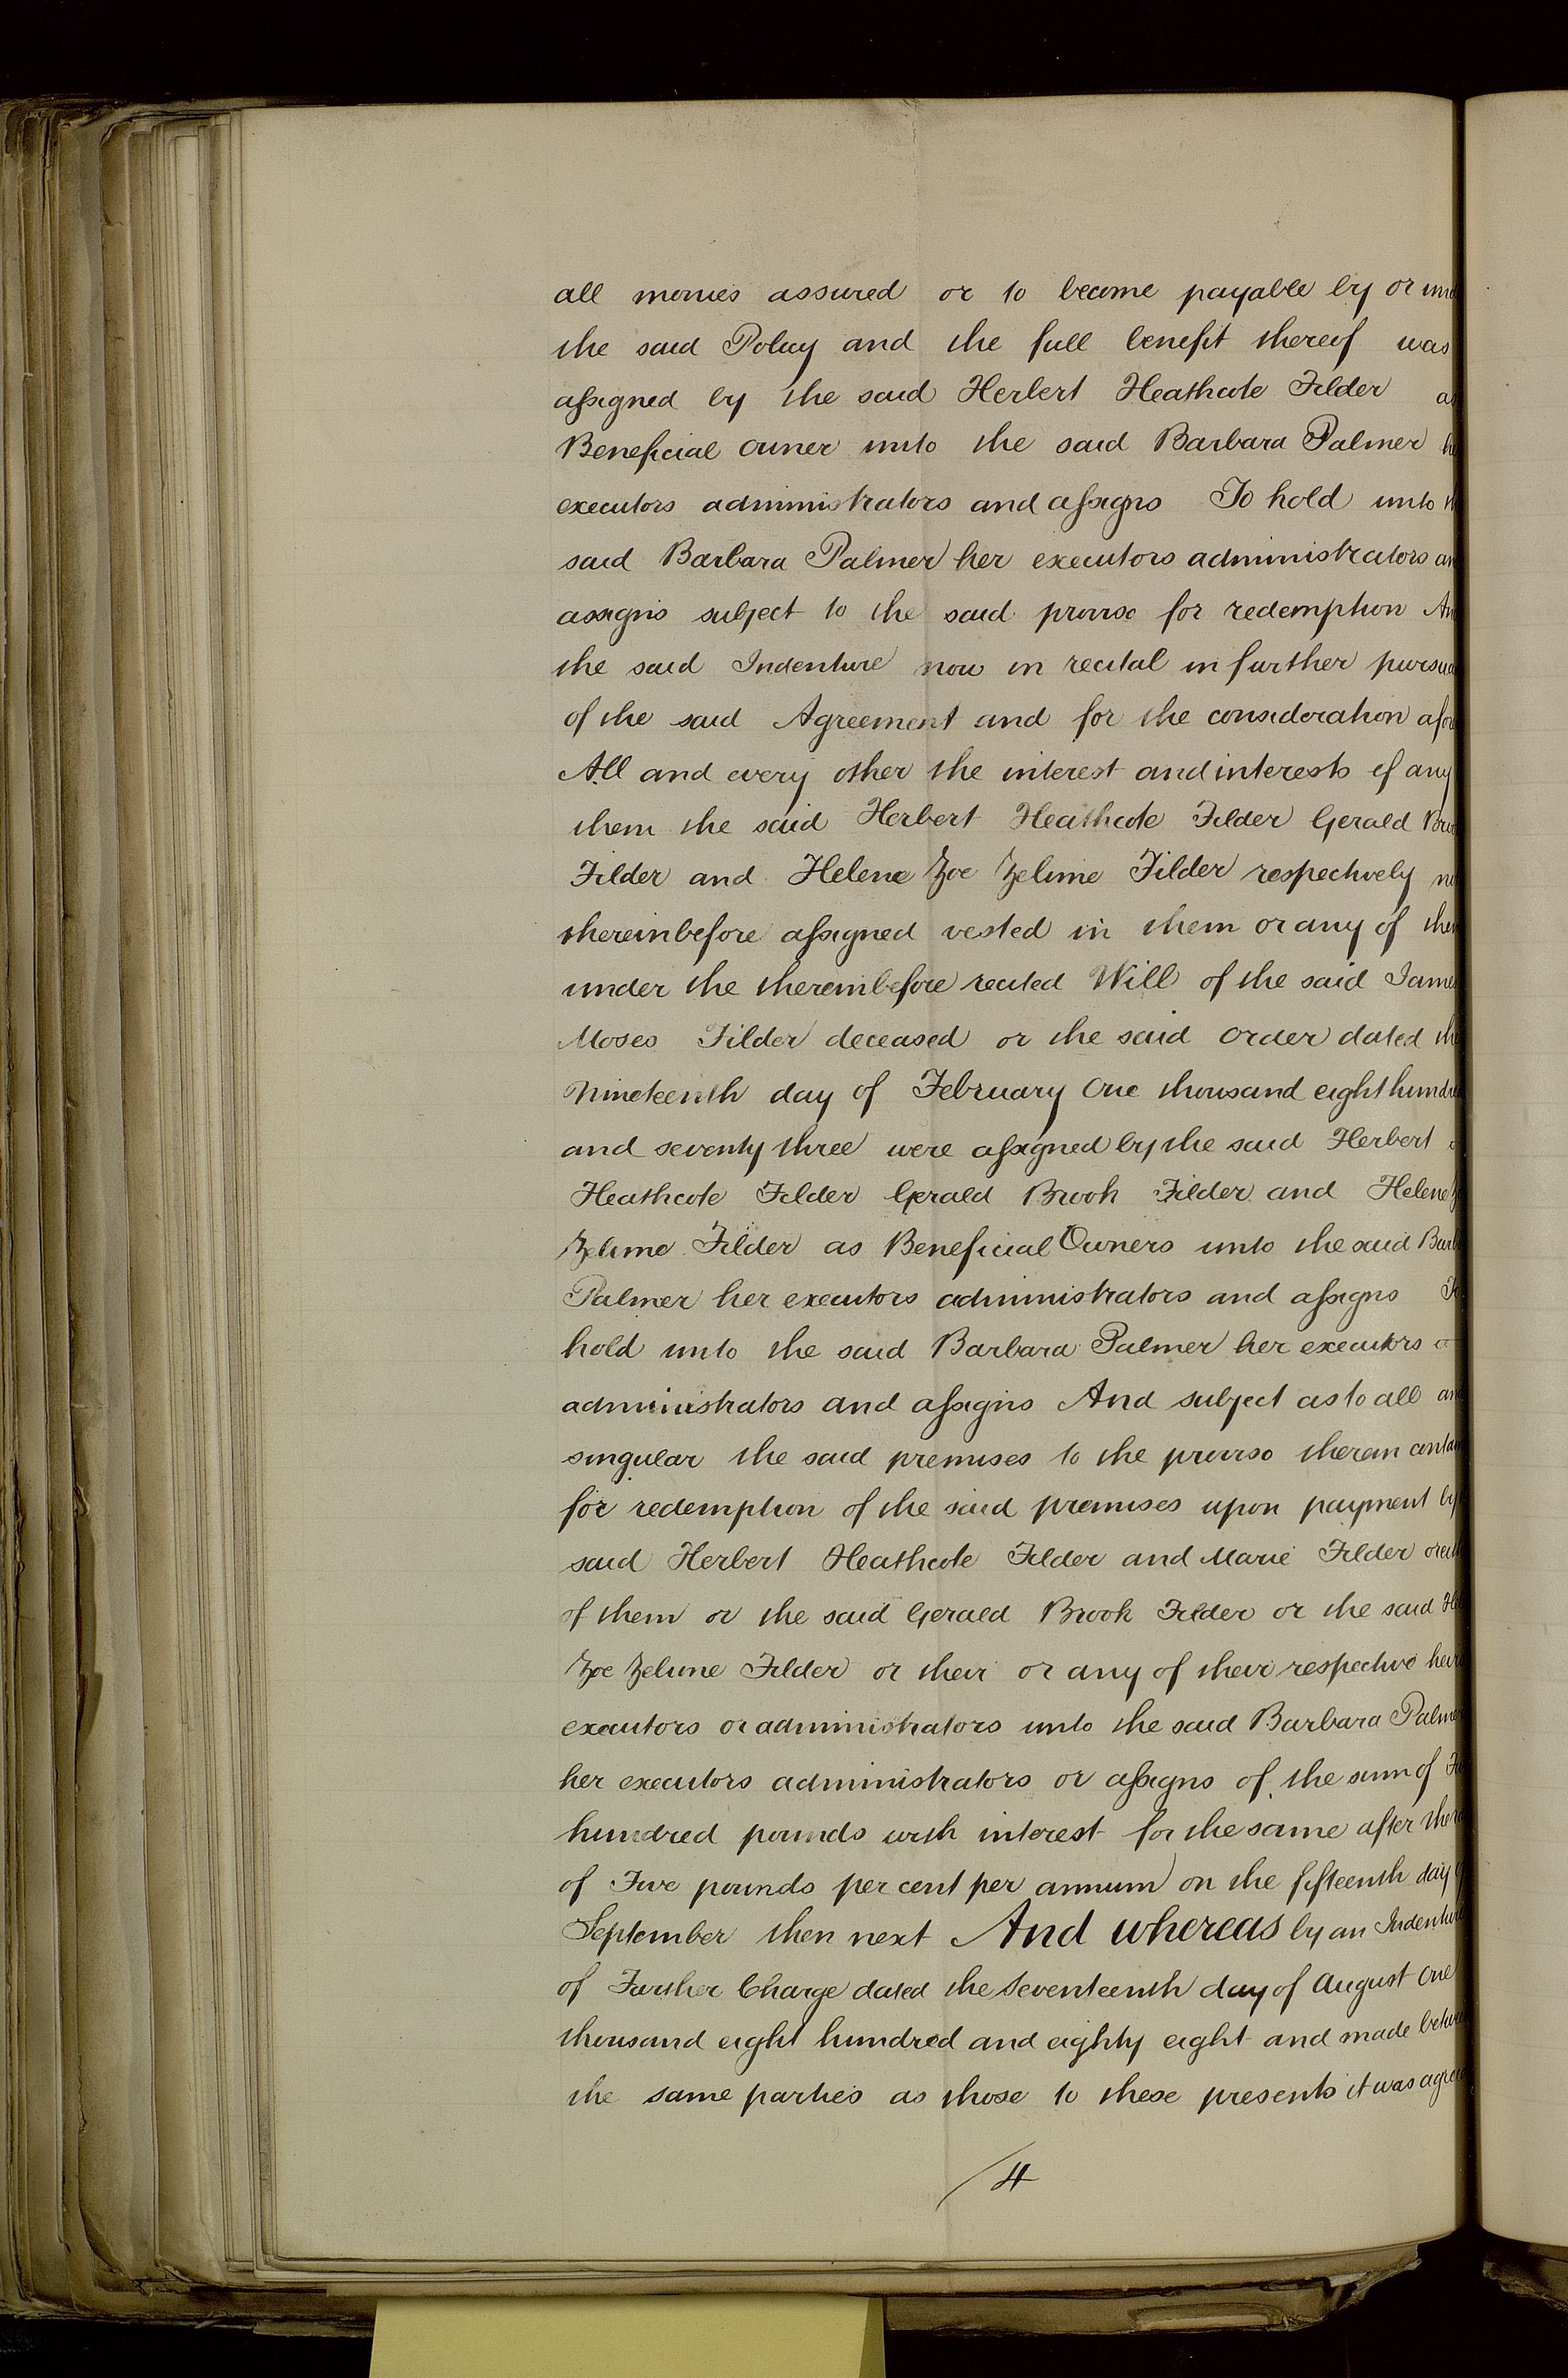 all monies assured or to become payable by or
the said Policy and the full benefit thereof was
assigned by the said Herbert Heathcote Filder
Beneficial owner unto the said Barbara Palmer
executors administrators and assigns To hold unto
said Barbara Palmer her executors administrators
assigns subject to the said proviso for redemption
the said Indenture now in recital in further
of the said Agreement and for the consideration
All and every other the interest and interests if any
them the said Herbert Heathcote Filder Gerald
Filder and Helene Zoe Zelime Filder respectively
thereinbefore assigned vested in them or any of
under the thereinbefore recited Will of the said
Moses Filder deceased or the said order dated
Nineteenth day of February One thousand eight
and seventy three were assigned by the said Herbert
Heathcote Filder Gerald Brook Filder and Helene
Zelime Filder as Beneficial Owners unto the said
Palmer her executors administrators and assigns
hold unto the said Barbara Palmer her executors
administrators and assigns And subject as to all
singular the said premises to the proviso therein
for redemption of the said premises upon payment by
said Herbert Heathcote Filder and Marie Filder
of them or the said Gerald Brook Filder or the said
Zoe Zelime Filder or their or any of their respective
executors or administrators unto the said Barbara Palmer
her executors administrators or assigns of the sum of
hundred pounds with interest for the same after
of Five pounds per cent per annum on the fifteenth day
September then next And whereas by an Indenture
of Further Charge dated the Seventeenth day of August One
thousand eight hundred and eighty eight and made
the same parties as those to these presents it was
4